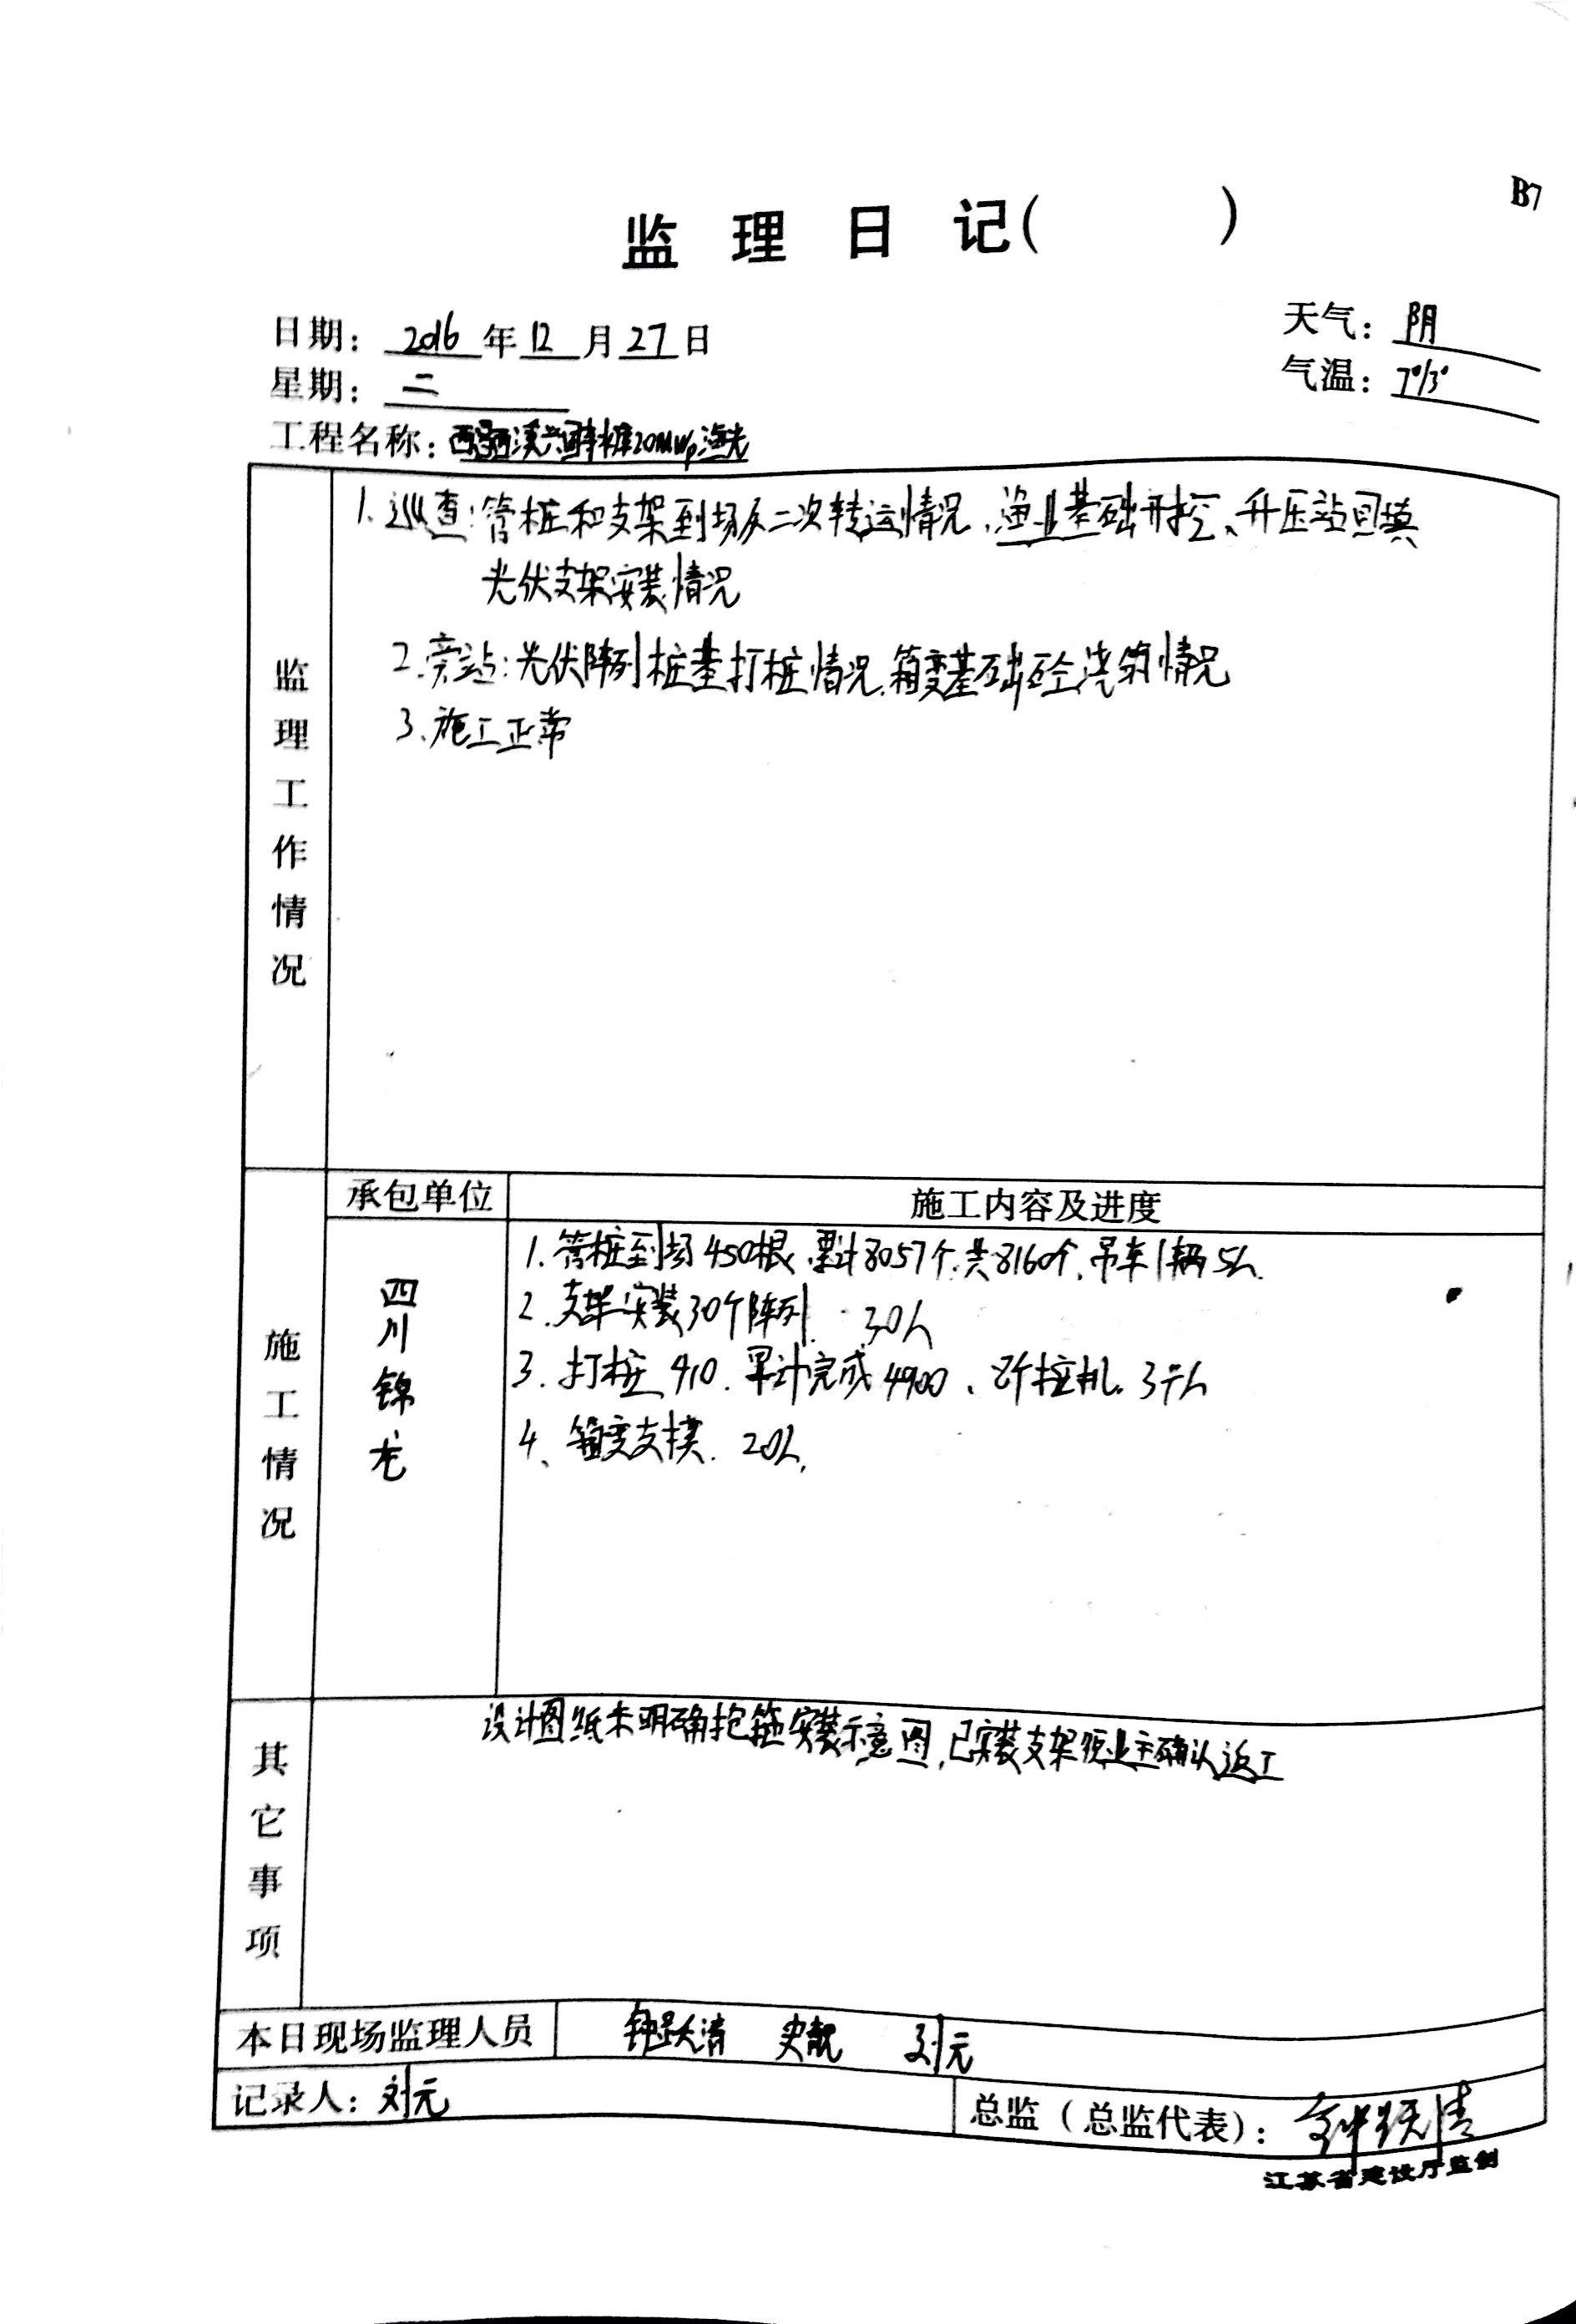 B7
监理日记( )
日期: 2016年12月27日
天气: 阴
星期: 二
气温: 7°/3°
工程名称: 20MWp渔光
监理工作情况
1.巡查:管桩和支架到场及二次转运情况、渔业基础开挖、升压站回填
光伏支架安装情况
2.旁站:光伏阵列桩基打桩情况、箱变基础砼浇筑情况
3、施工正常
施工情况
承包单位
施工内容及进度
四川锦龙
1.管桩到场450根、累计8057个.共8160个、吊车1辆5人.
2.支架安装30个阵列. 30人
3.打桩410.累计完成4900、桩机.
4、箱变支模. 20人.
其它事项
设计图纸未明确抱箍安装示意图,已安装支架经业主确认返工
本日现场监理人员 钟跃清 史靓 刘元
记录人: 刘元
总监(总监代表): 钟跃清
江苏省建设厅监制